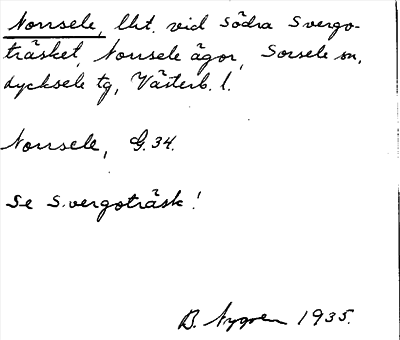 Nonsele, lht. vid Södra Svergo-
träsket, Nonsele ägor, Sorsele sn,
Lycksele tg, Västerb. l.
Nonsele, G. 34.
Se S. vergoträsk!
B. Nygren 1935.